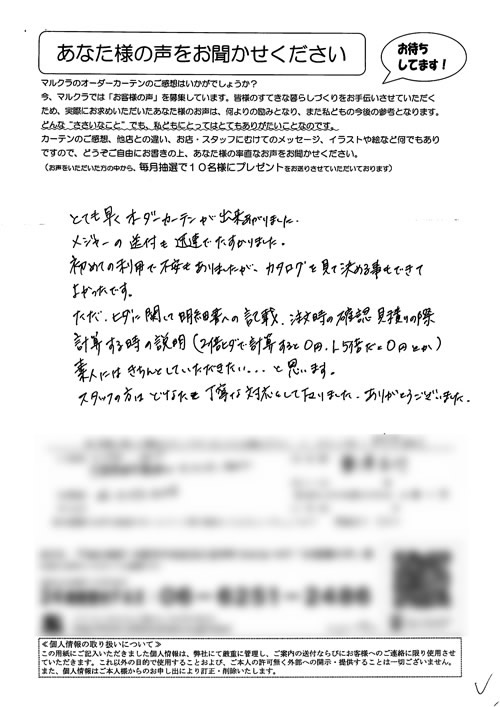 あなた様の声をお聞かせください
お待ち
してます！
マルクラのオーダーカーテンのご感想はいかがでしょうか？
今、マルクラでは「お客様の声」を募集しています。皆様のすてきな暮らしづくりをお手伝いさせていただく
ため、実際にお求めいただいたあなた様のお声は、何よりの励みとなり、また私どもの今後の参考となります。
どんな“ささいなこと”でも、私どもにとってはとてもありがたいことなのです。
カーテンのご感想、他店との違い、お店・スタッフにむけてのメッセージ、イラストや絵など何でもあり
ですので、どうぞご自由にお書きの上、あなた様の率直なお声をお聞かせください。
（お声をいただいた方の中から、毎月抽選で１０名様にプレゼントをお送りさせていただいております）
とても早くオーダーカーテンが出来あがりました。
メジャーの送付も迅速でたすかりました。
初めての利用で不安もありましたが、カタログを見て決める事もできて
よかったです。
ただ、ヒダに関して明細書への記載、注文時の確認 見積りの際
計算する時の説明（2倍ヒダで計算すると0円、1.5倍だと0円とか）
素人にはきちんとしていただきたい...と思います。
スタッフの方はどなたも丁寧な対応をして下りました。ありがとうございました。
06-6251-2486
≪個人情報の取り扱いについて≫
この用紙にご記入いただきました個人情報は、弊社にて厳重に管理し、ご案内の送付ならびにお客様へのご連絡に限り使用させ
ていただきます。これ以外の目的で使用することおよび、ご本人の許可無く外部への開示・提供することは一切ございません。
また、個人情報はご本人様からのお申し出により訂正・削除いたします。